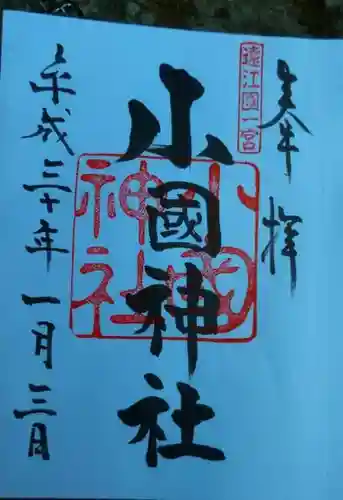 奉拝
遠江國一宮
小國神社
小國神社
平成三十年一月三日